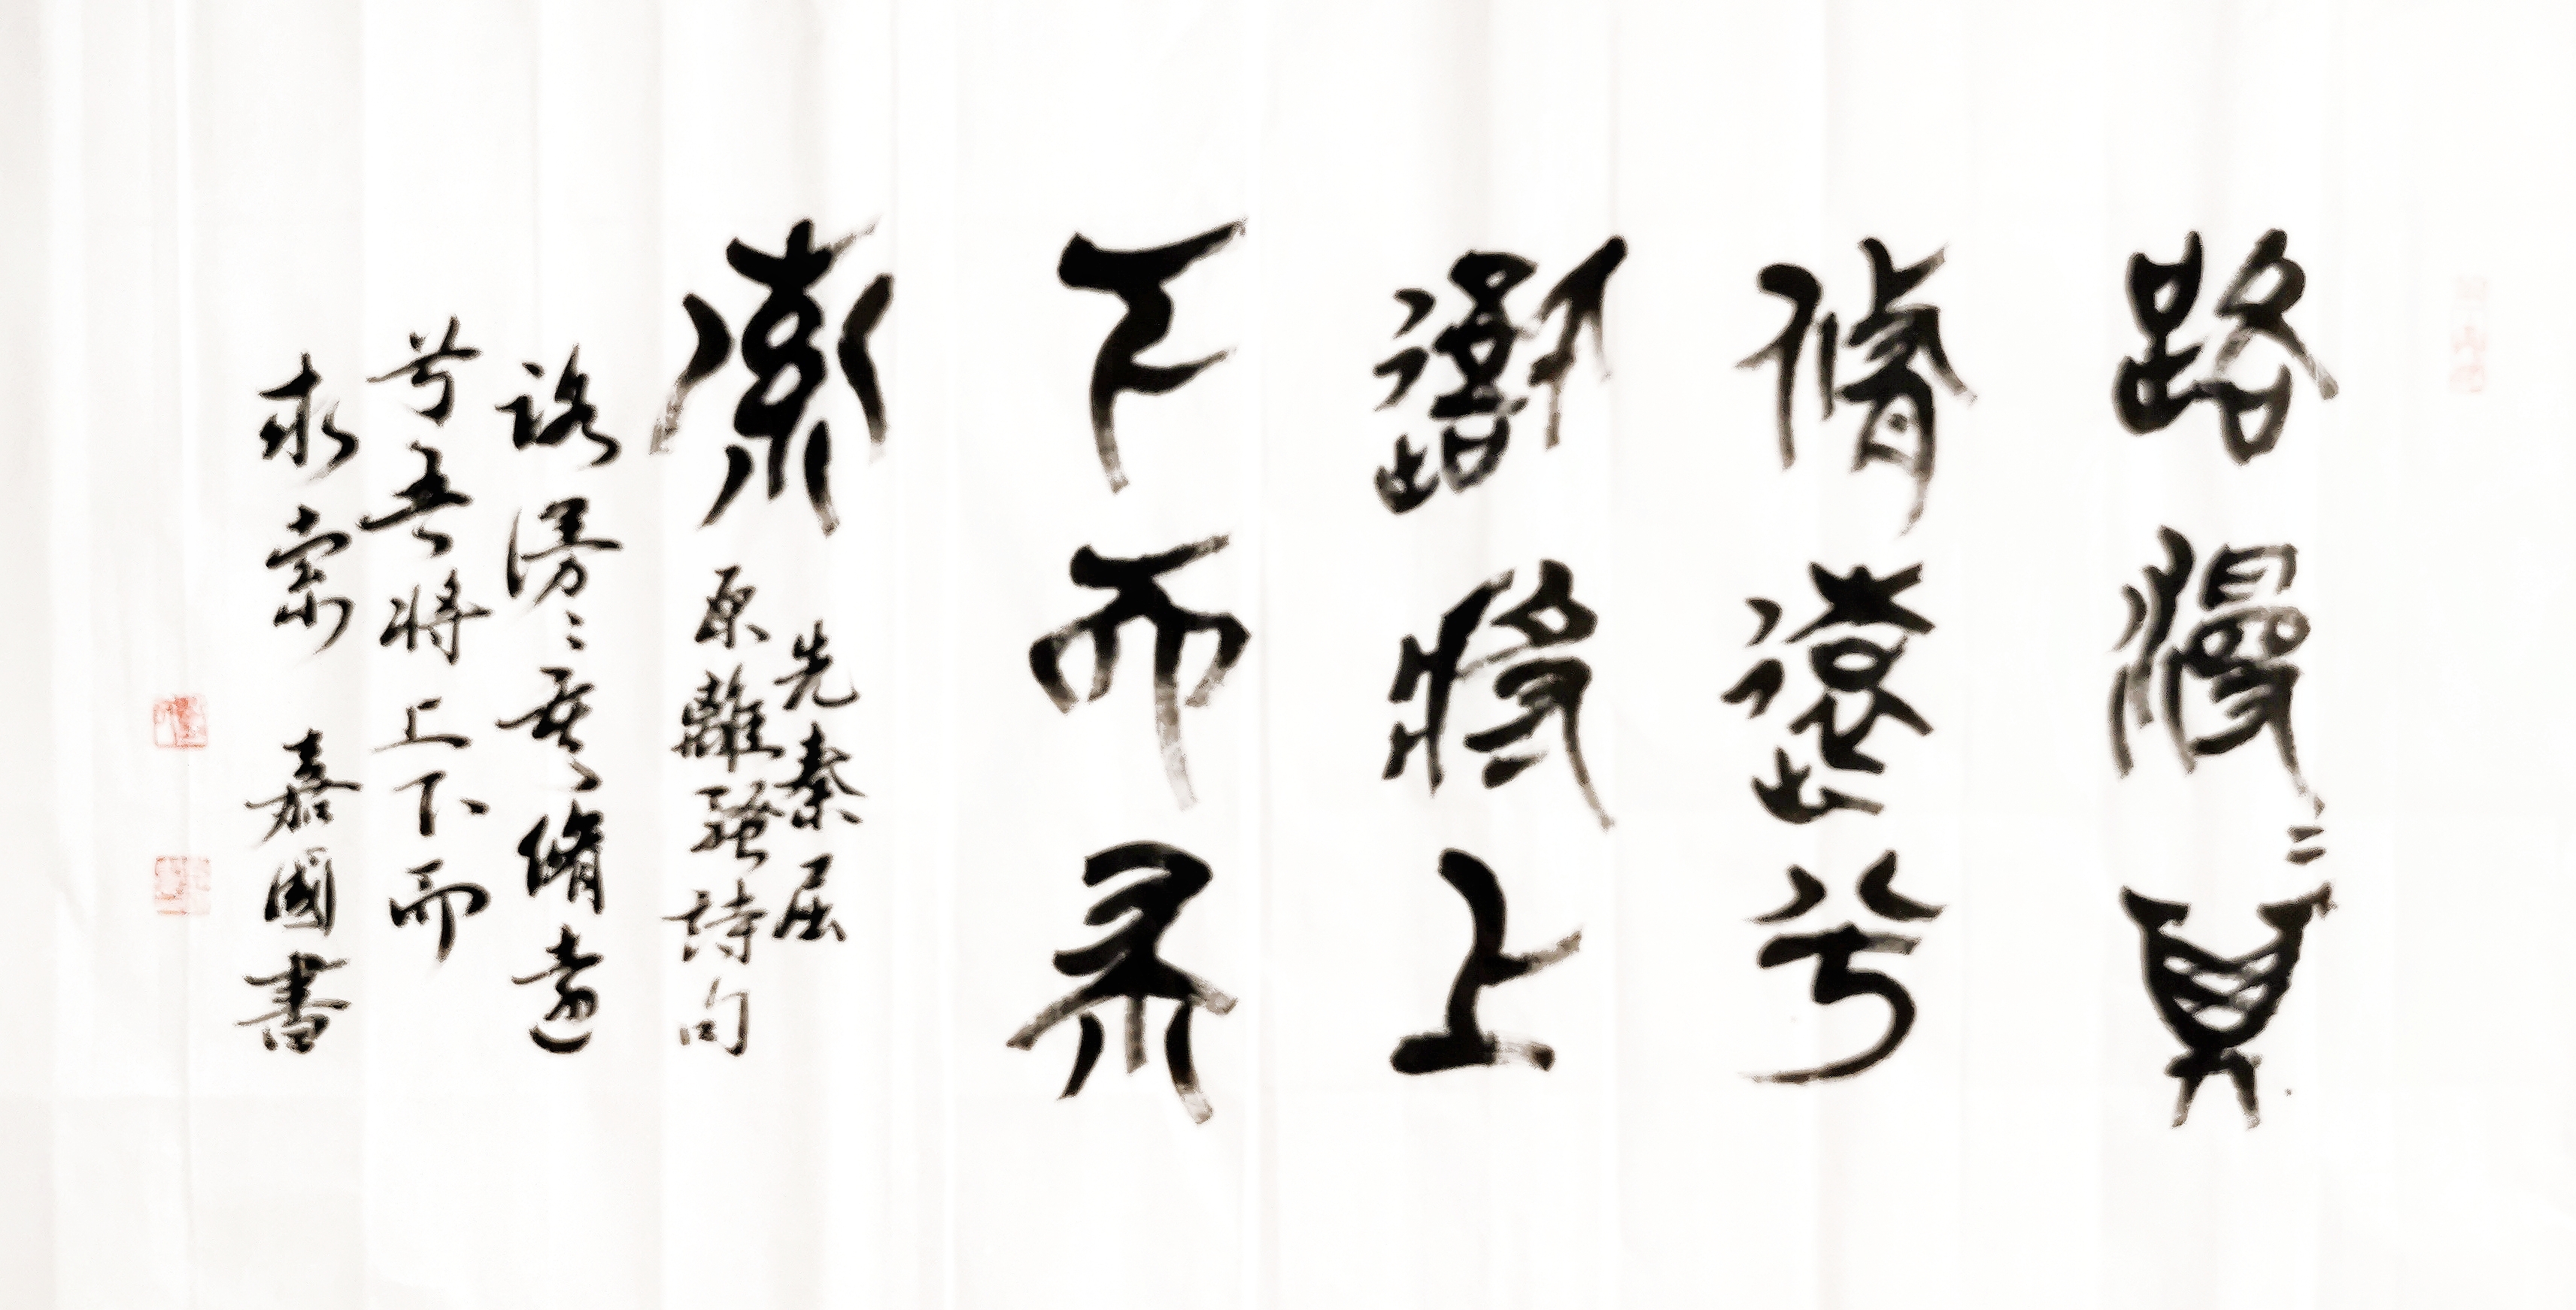 路漫〻其
修遠兮
吾將上
下而求
索
先秦屈
原離騷詩句
路漫〻其修遠
兮吾將上下而
求索 嘉國書